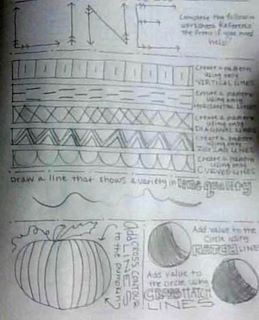 LINE
Complete the following
worksheet. Reference
the front if you need
help!
Create a pattern
using only
VERTICAL LINES
Create a pattern
using only
HORIZONTAL LINES
Create a pattern
using only
DIAGONAL LINES
Create a pattern
using only
ZIG ZAG LINES
Create a pattern
using only
CURVED LINES
Draw a line that shows a variety in line quality
Add CROSS CONTOUR
LINES
to the pumpkin!
Add value to the
circle using
HATCH LINES
Add value to
the circle using
CROSSHATCH
LINES